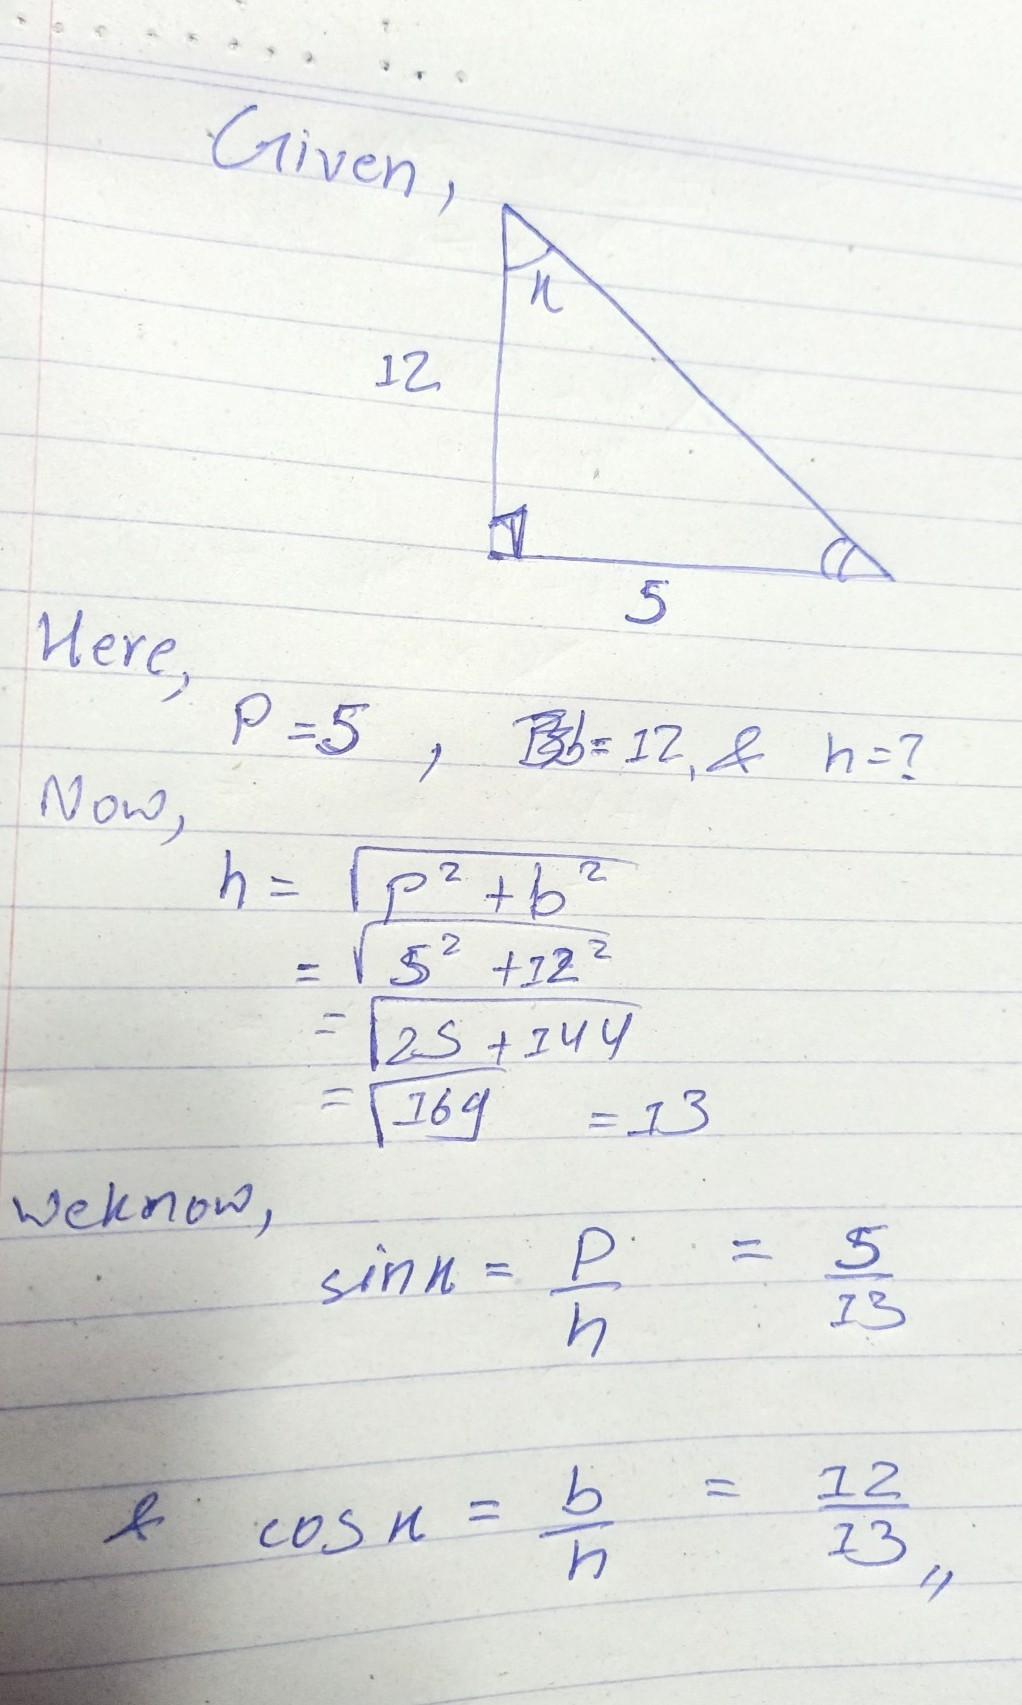 Given,
x
12
5
Here,
P = 5 , b = 12, & h = ?
Now,
h = √p² + b²
= √5² + 12²
= √25 + 144
= √169 = 13
We know,
sin x = P/h = 5/13
& cos x = b/h = 12/13 ,,